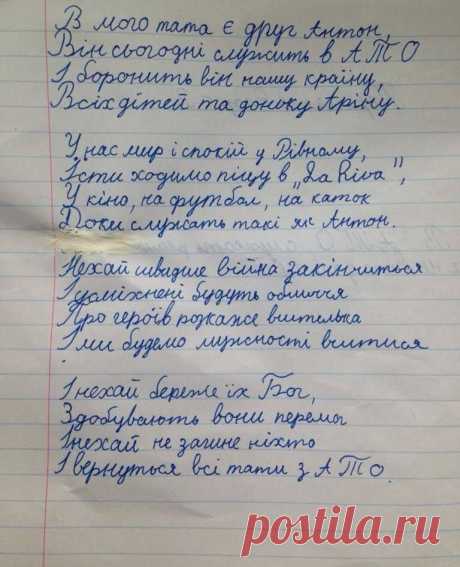 В мого тата є друг Антон,
Він сьогодні служить в АТО
І боронить він нашу країну,
Всіх дітей та доньку Аріну.
У нас мир і спокій у Рівному,
Їсти ходимо піцу в „La Riva",
У кіно, на футбол, на каток
Доки служать такі як Антон.
Нехай швидше війна закінчиться
І усміхнені будуть обличчя
Про героїв розкаже вчителька
І ми будемо мужності вчитися
І нехай береже їх Бог,
Здобувають вони перемог
І нехай не загине ніхто
І вернуться всі тати з АТО.
postila.ru